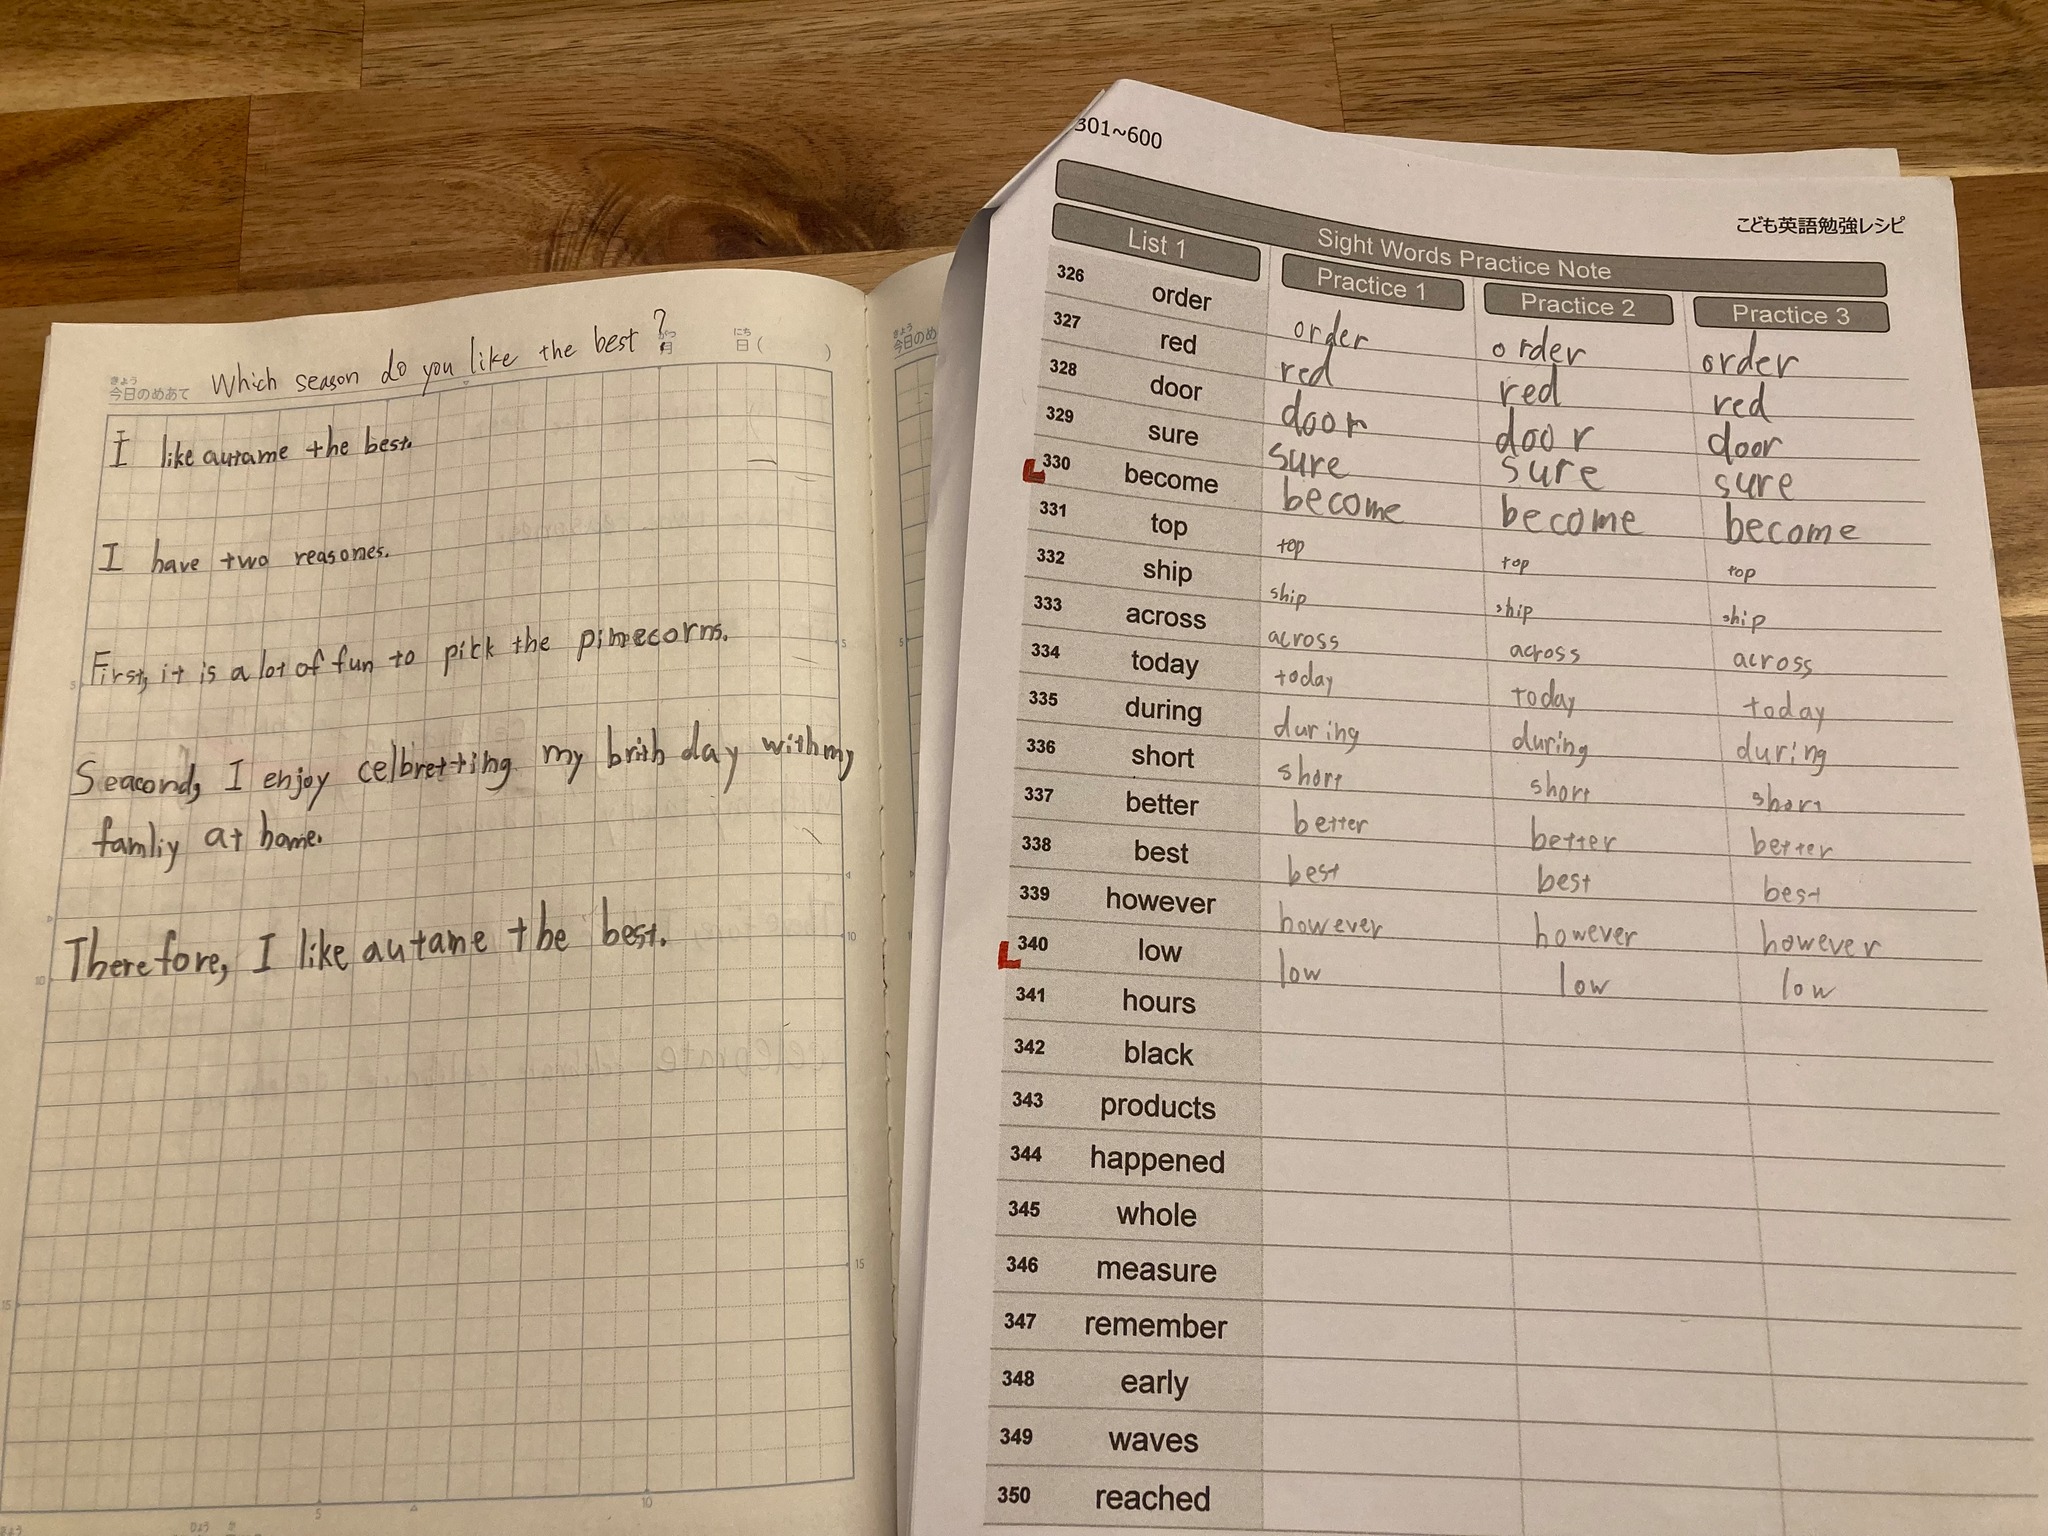 きょう
今日のめあて Which season do you like the best?
がつ
月
にち
日( )
I like autame the best.
I have two reasones.
First, it is a lot of fun to pick the pinecorns.
Seacond, I enjoy celbretting my brith day with my
famliy at home.
Therefore, I like autame the best.
5
5
10
10
15
15
5
10
きょう
今日のめ
5
301~600
こども英語勉強レシピ
Sight Words Practice Note
List 1 Practice 1 Practice 2 Practice 3
326 order order order order
327 red red red red
328 door door door door
329 sure sure sure sure
330 become become become become
331 top top top top
332 ship ship ship ship
333 across across across across
334 today today today today
335 during during during during
336 short short short short
337 better better better better
338 best best best best
339 however however however however
340 low low low low
341 hours
342 black
343 products
344 happened
345 whole
346 measure
347 remember
348 early
349 waves
350 reached